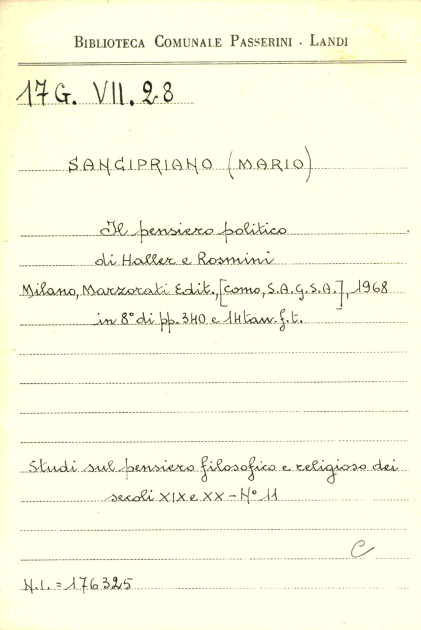 BIBLIOTECA COMUNALE PASSERINI - LANDI
17G. VII. 28
SANCIPRIANO (MARIO)
Il pensiero politico
di Haller e Rosmini
Milano, Marzorati Edit., [Como, S.A.G.S.A.], 1968
in 8° di pp. 340 e 14 tav. f.t.
Studi sul pensiero filosofico e religioso dei
secoli XIX e XX - N° 11
C
N.I. = 176325